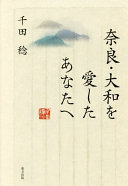 奈良・大和を
愛した
あなたへ
千田 稔